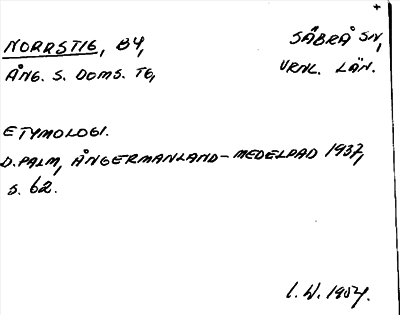 NORRSTIG, BY, SÄBRÅ SN,
ÅNG. S. DOMS. TG, VRNL. LÄN.
ETYMOLOGI.
D. PALM, ÅNGERMANLAND-MEDELPAD 1937,
S. 62.
I. W. 1954.